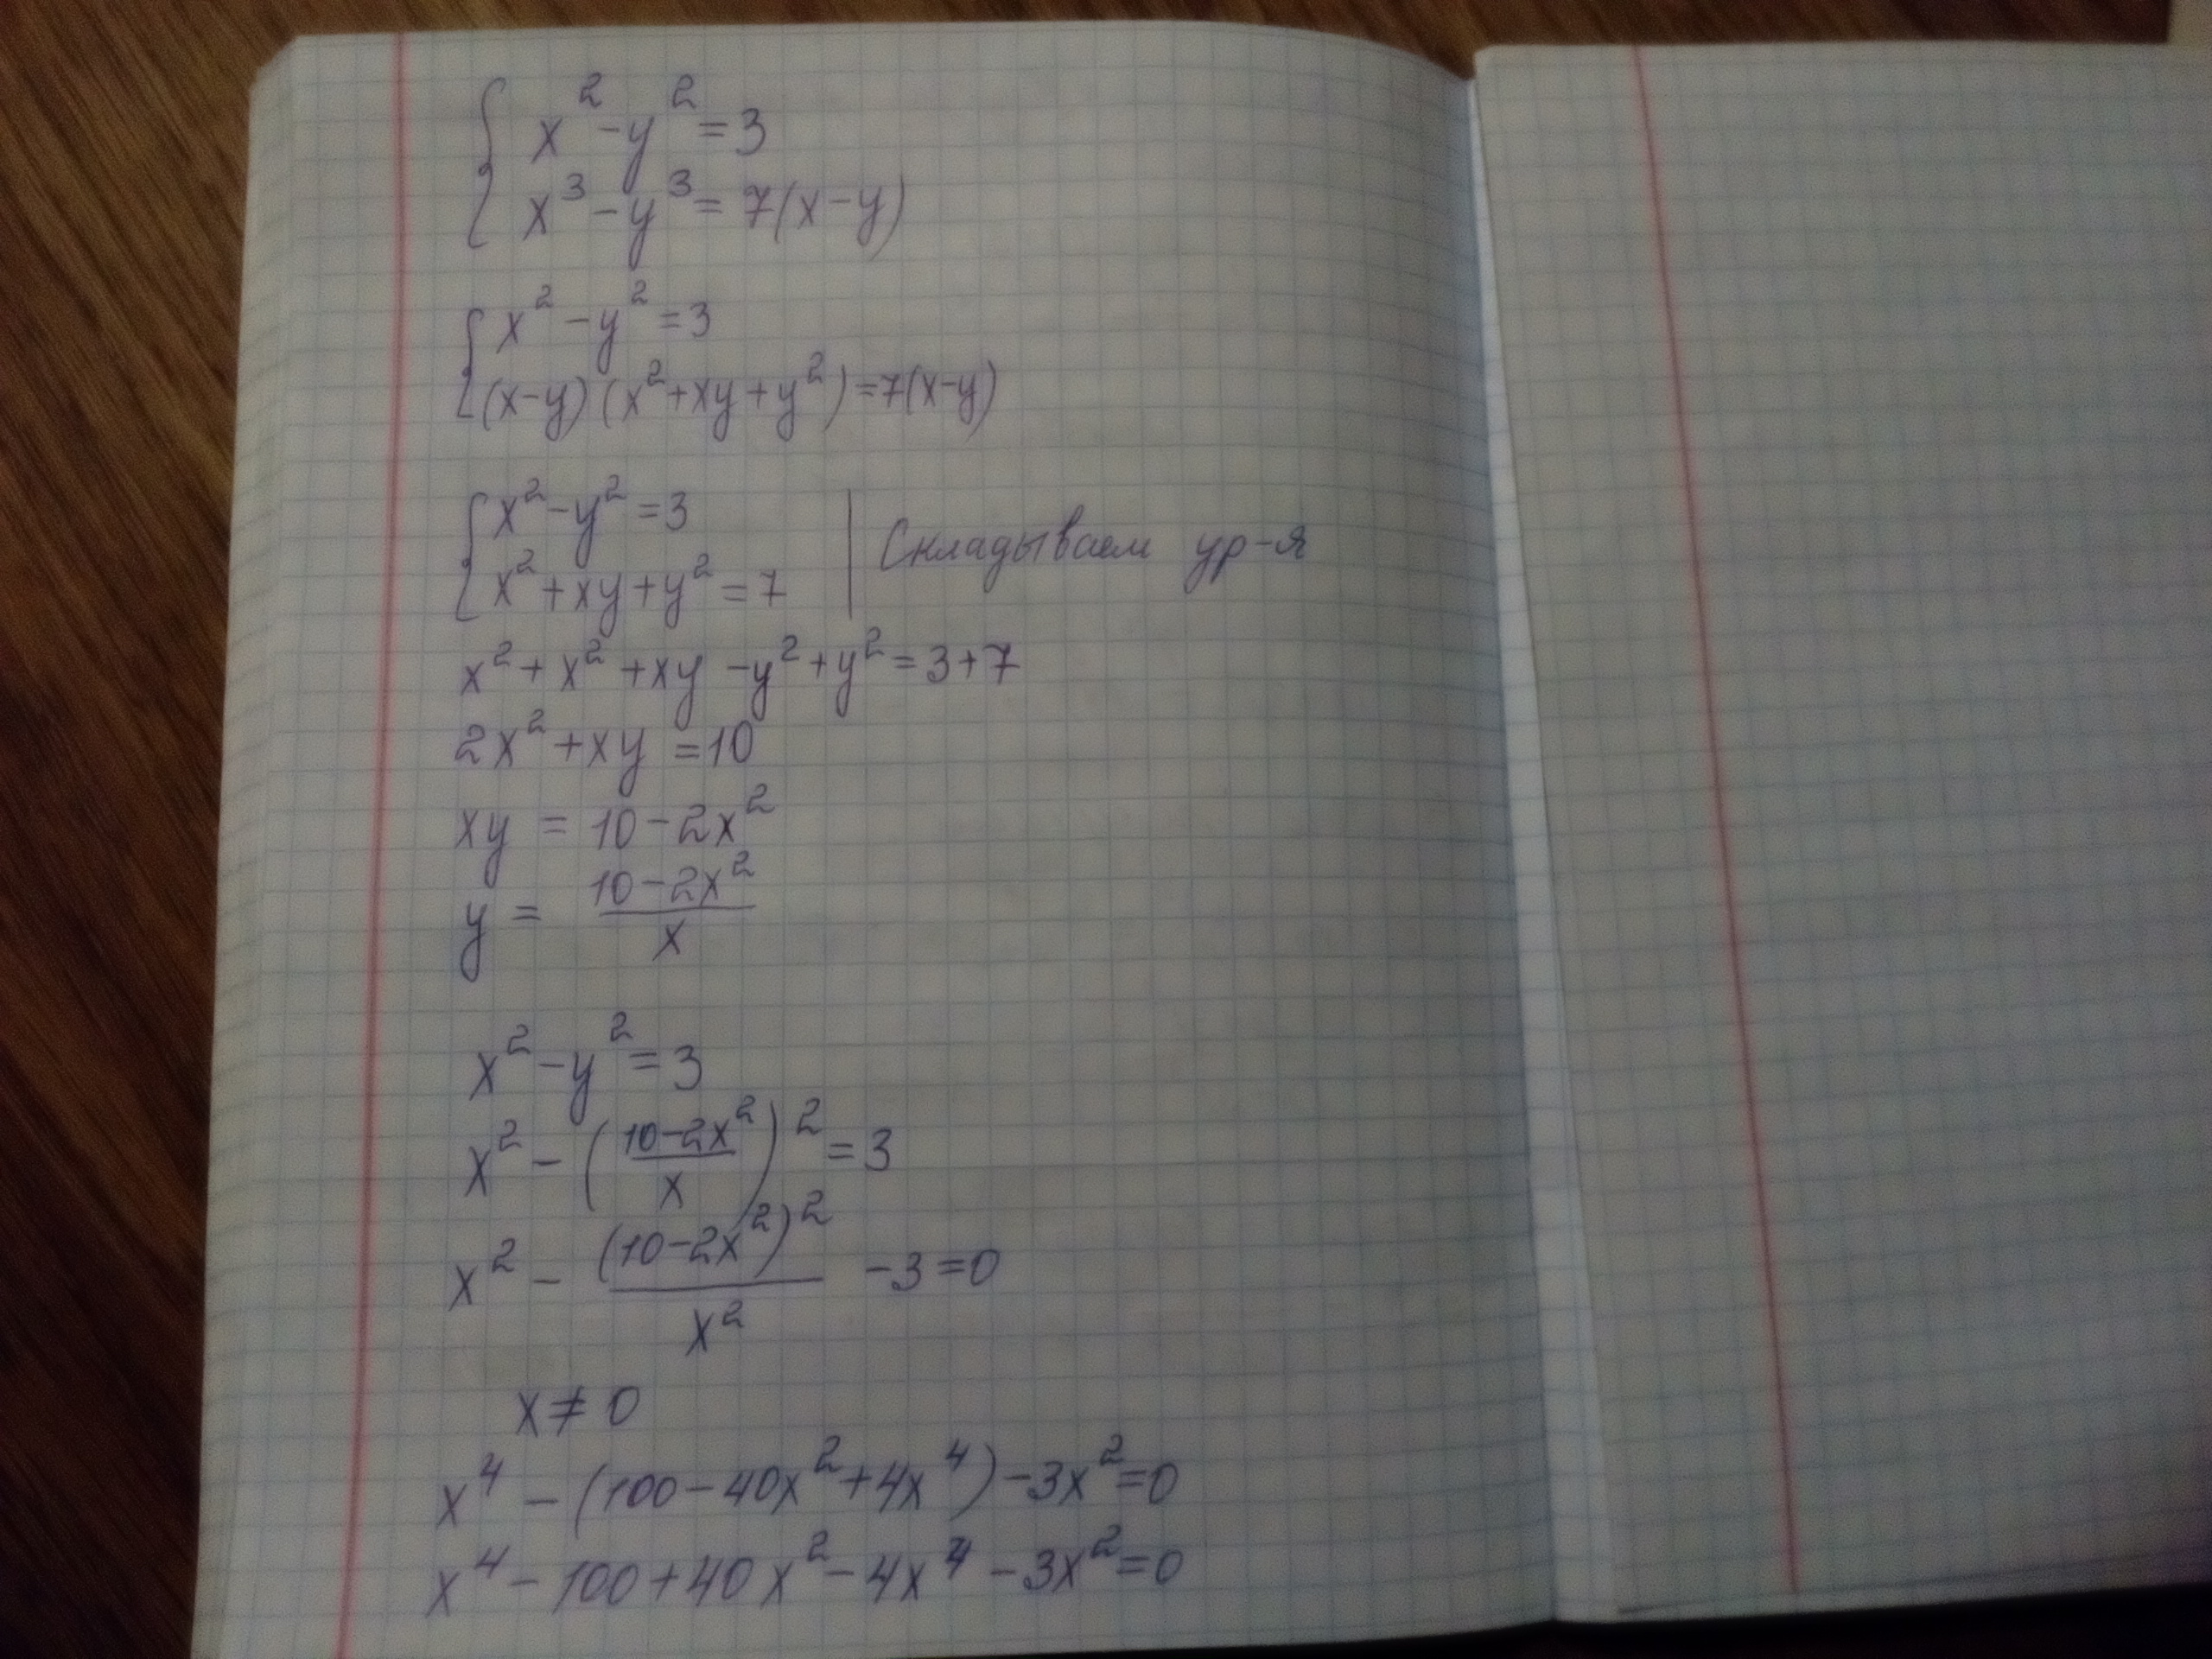 x² - y² = 3
x³ - y³ = 7(x - y)
x² - y² = 3
(x - y)(x² + xy + y²) = 7(x - y)
x² - y² = 3
x² + xy + y² = 7 | Складываем ур-я
x² + x² + xy - y² + y² = 3 + 7
2x² + xy = 10
xy = 10 - 2x²
y = (10 - 2x²)/x
x² - y² = 3
x² - ((10 - 2x²)/x)² = 3
x² - (10 - 2x²)²/x² - 3 = 0
x ≠ 0
x⁴ - (100 - 40x² + 4x⁴) - 3x² = 0
x⁴ - 100 + 40x² - 4x⁴ - 3x² = 0